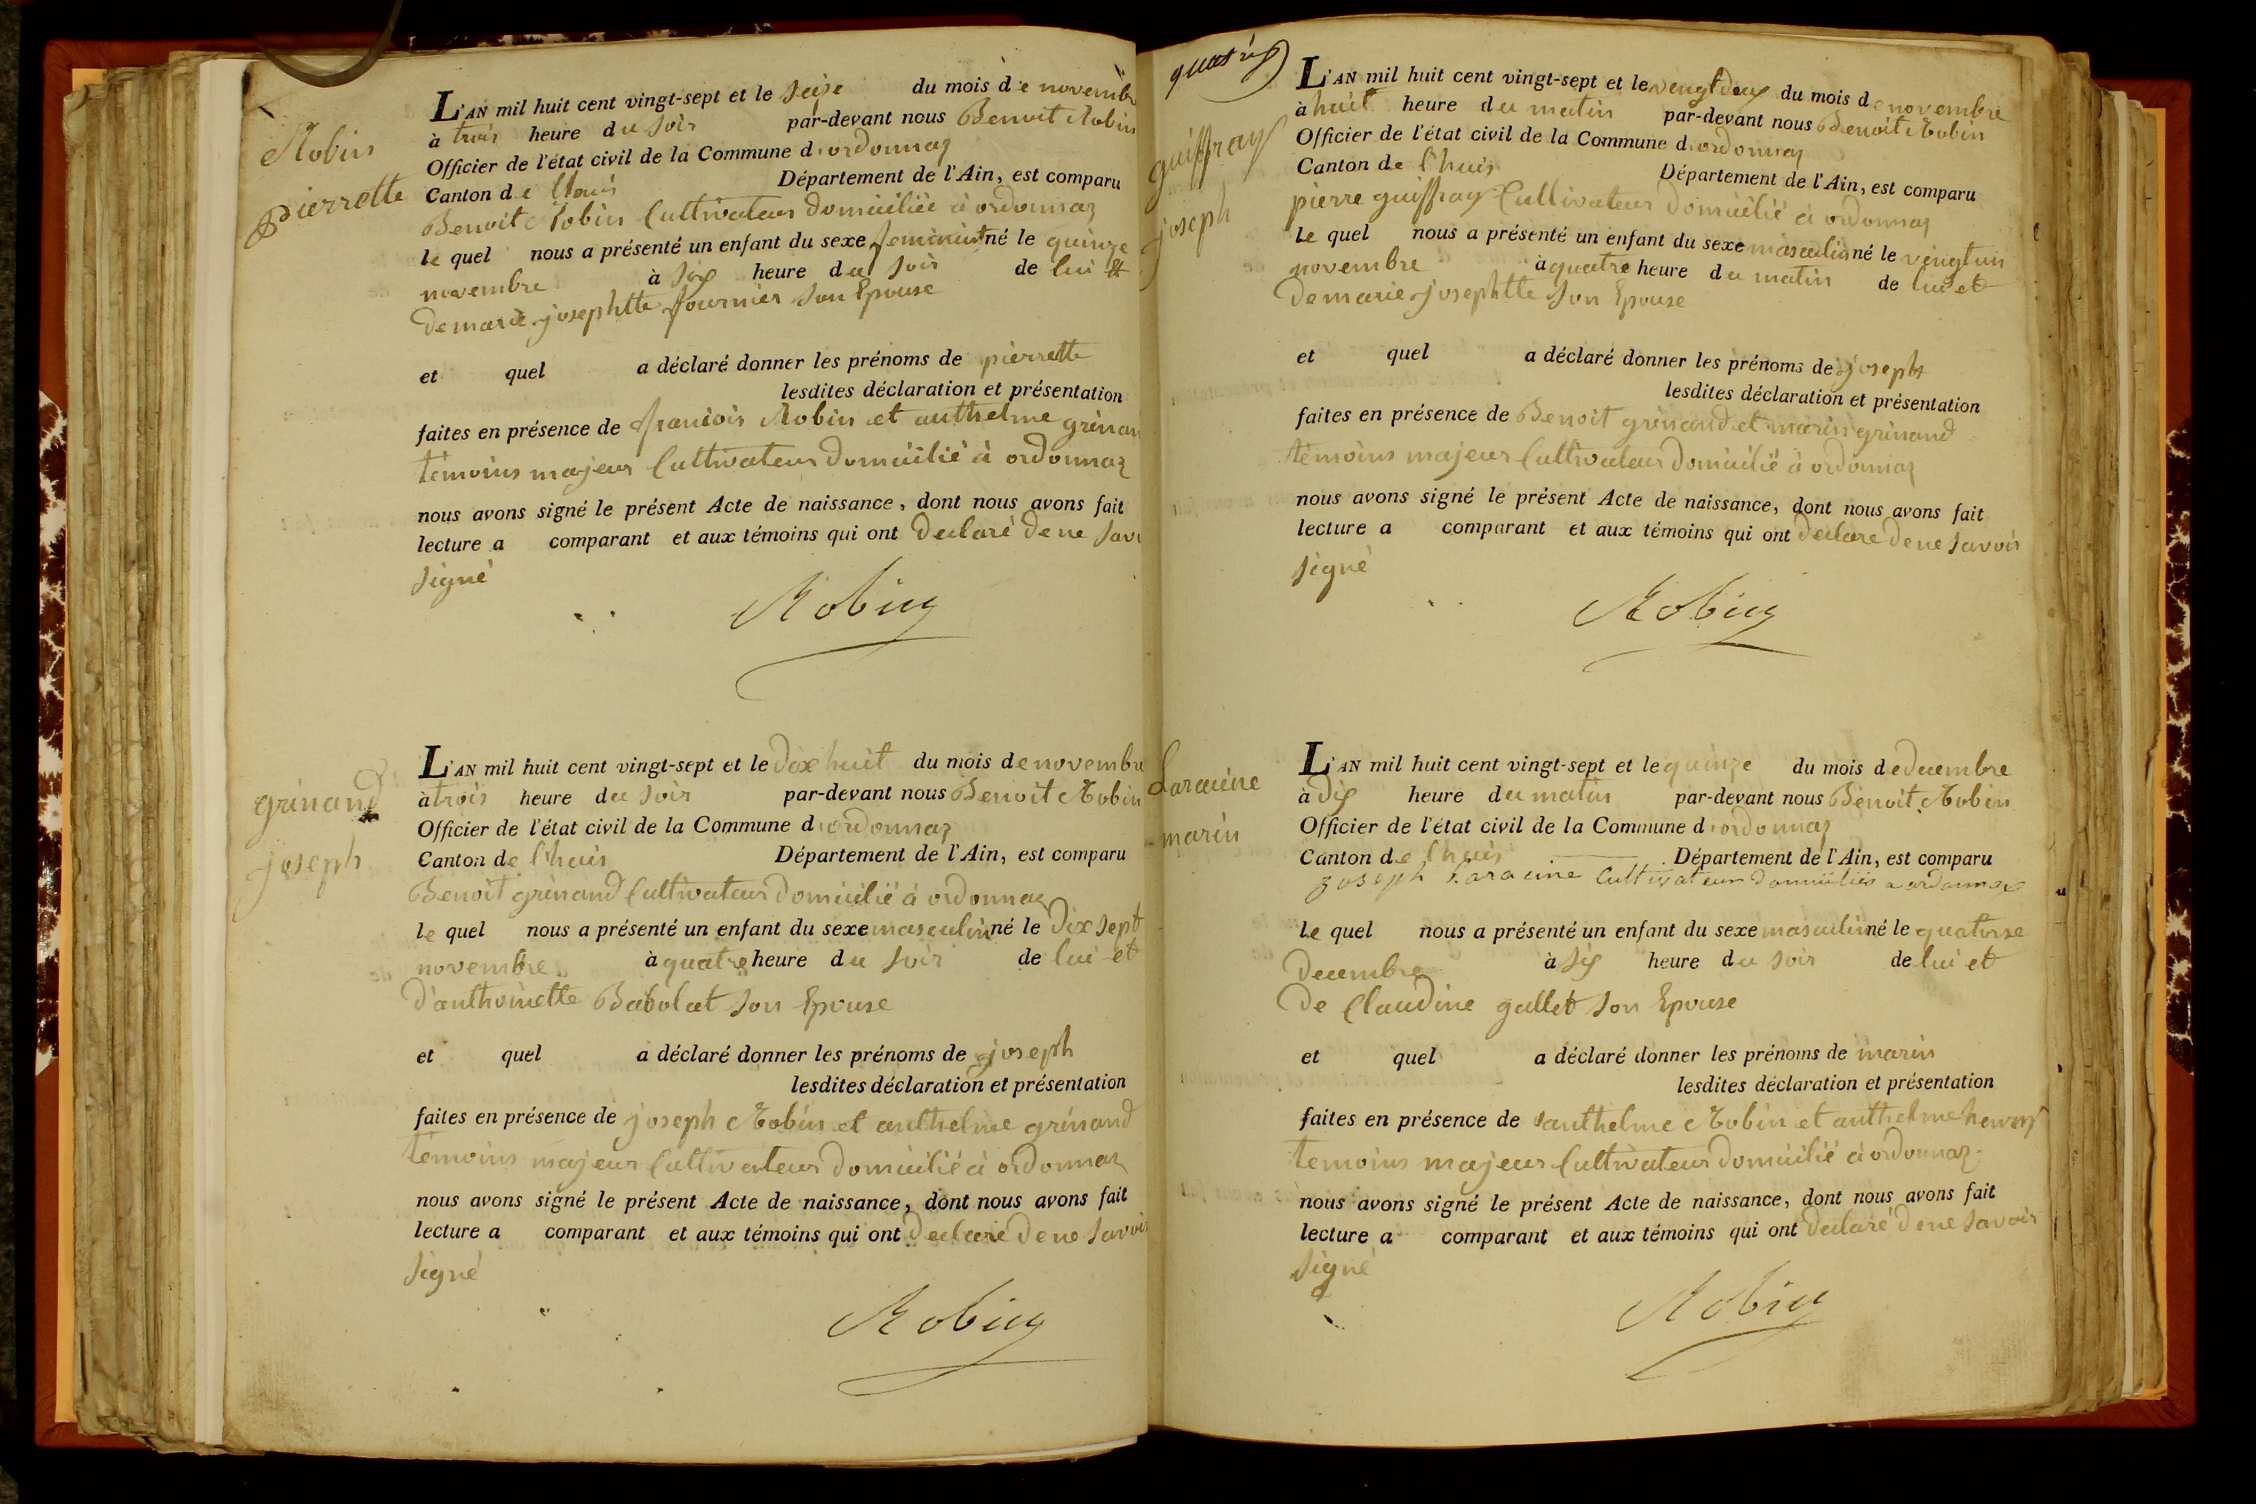 Robin
pierrette
L'AN mil huit cent vingt-sept et le seize du mois de novembre
à trois heure du soir par-devant nous Benoit Robin
Officier de l'état civil de la Commune d'ordonnaz
Canton de lhuis Département de l'Ain, est comparu
Benoit Robin Cultivateur domicilié à ordonnaz
le quel nous a présenté un enfant du sexe feminin né le quinze
novembre à six heure du soir de lui et
de marie josephtte fournier son Epouse
et quel a déclaré donner les prénoms de pierrette
lesdites déclaration et présentation
faites en présence de francois Robin et anthelme grinan
témoins majeur Cultivateur domicilié à ordonnaz
nous avons signé le présent Acte de naissance, dont nous avons fait
lecture a comparant et aux témoins qui ont declaré de ne savoi
signé
Robin
grinand
joseph
L'AN mil huit cent vingt-sept et le dix huit du mois de novembre
à trois heure du soir par-devant nous Benoit Robin
Officier de l'état civil de la Commune d'ordonnaz
Canton de lhuis Département de l'Ain, est comparu
Benoit grinand Cultivateur domicilié à ordonnaz
le quel nous a présenté un enfant du sexe masculin né le dix sept
novembre à quatre heure du soir de lui et
d'anthoinette Babolat son Epouse
et quel a déclaré donner les prénoms de joseph
lesdites déclaration et présentation
faites en présence de joseph Robin et anthelme grinand
témoins majeur Cultivateur domicilié à ordonnaz
nous avons signé le présent Acte de naissance, dont nous avons fait
lecture a comparant et aux témoins qui ont declaré de ne savoir
signé
Robin
guiffray
joseph
L'AN mil huit cent vingt-sept et le vingt deux du mois de novembre
à huit heure du matin par-devant nous Benoit Robin
Officier de l'état civil de la Commune d'ordonnaz
Canton de lhuis Département de l'Ain, est comparu
pierre guiffray Cultivateur domicilié à ordonnaz
le quel nous a présenté un enfant du sexe masculin né le vingt un
novembre à quatre heure du matin de lui et
de marie josephtte son Epouse
et quel a déclaré donner les prénoms de joseph
lesdites déclaration et présentation
faites en présence de Benoit grinand et marin grinand
témoins majeur Cultivateur domicilié à ordonnaz
nous avons signé le présent Acte de naissance, dont nous avons fait
lecture a comparant et aux témoins qui ont declaré de ne savoir
signé
Robin
Laracine
marin
L'AN mil huit cent vingt-sept et le quinze du mois de decembre
à dix heure du matin par-devant nous Benoit Robin
Officier de l'état civil de la Commune d'ordonnaz
Canton de lhuis Département de l'Ain, est comparu
joseph Laracine Cultivateur domiciliés a ordonnaz
le quel nous a présenté un enfant du sexe masculin né le quatorze
decembre à six heure du soir de lui et
de Claudine gallet son Epouse
et quel a déclaré donner les prénoms de marin
lesdites déclaration et présentation
faites en présence de anthelme Robin et anthelme henry
temoins majeur Cultivateur domicilié à ordonnaz
nous avons signé le présent Acte de naissance, dont nous avons fait
lecture a comparant et aux témoins qui ont declaré de ne savoir
signé
Robin